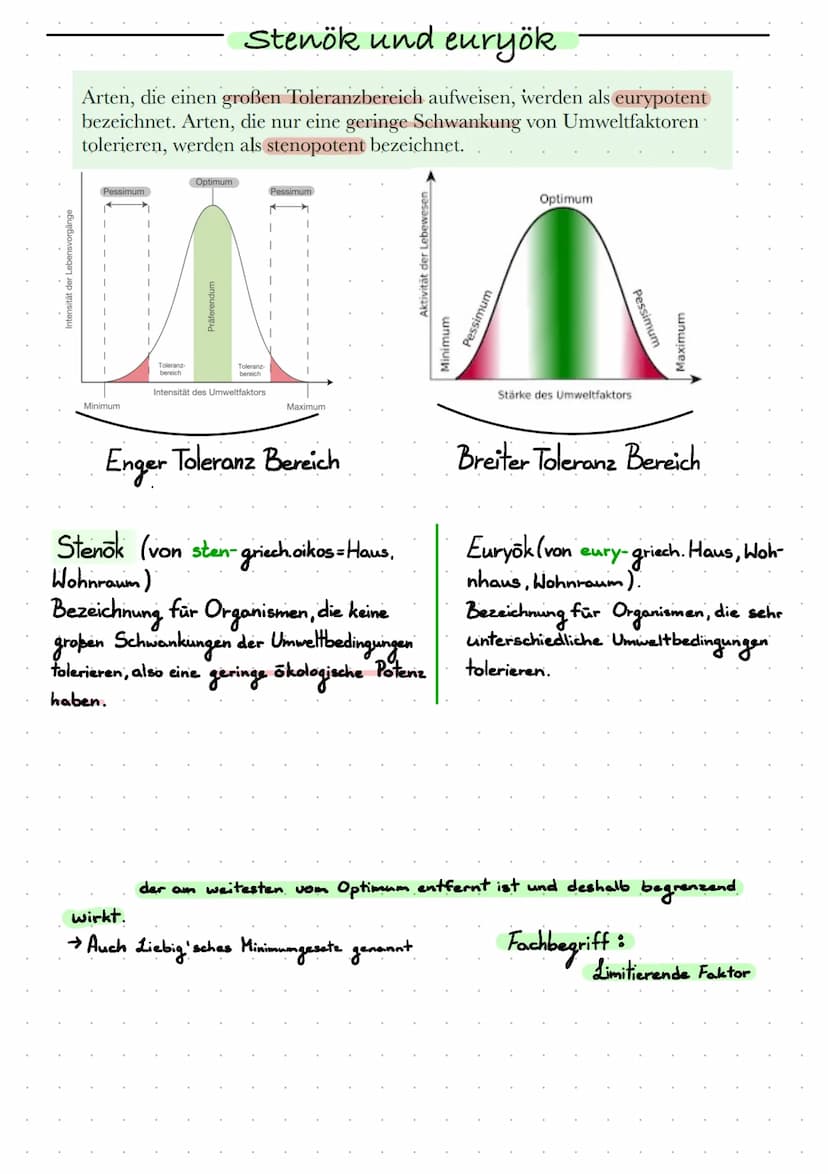 Stenök und euryök
Arten, die einen großen Toleranzbereich aufweisen, werden als eurypotent
bezeichnet. Arten, die nur eine geringe Schwankung von Umweltfaktoren
tolerieren, werden als stenopotent bezeichnet.
Pessimum
Optimum
Pessimum
Intensität der Lebensvorgänge
Präferendum
Toleranz-
bereich
Toleranz-
bereich
Intensität des Umweltfaktors
Minimum
Maximum
Optimum
Aktivität der Lebewesen
Minimum
Pessimum
Pessimum
Maximum
Stärke des Umweltfaktors
Enger Toleranz Bereich
Breiter Toleranz Bereich
Stenök (von sten-griech.oikos=Haus,
Wohnraum)
Bezeichnung für Organismen, die keine
großen Schwankungen der Umweltbedingungen
tolerieren, also eine geringe ökologische Potenz
haben.
Euryök (von eury-griech. Haus, Woh-
nhaus, Wohnraum).
Bezeichnung für Organismen, die sehr
unterschiedliche Umweltbedingungen
tolerieren.
der am weitesten vom Optimum entfernt ist und deshalb begrenzend
wirkt.
→ Auch Liebig'sches Minimumgesetz genannt
Fachbegriff:
Limitierende Faktor